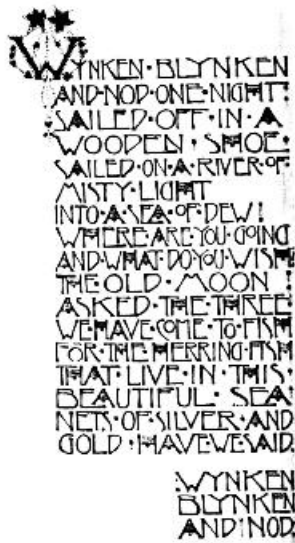 WYNKEN·BLYNKEN
AND·NOD·ONE·NIGHT·
SAILED·OFF·IN·A
WOODEN·SHOE·
SAILED·ON·A·RIVER·OF
MISTY·LIGHT
INTO·A·SEA·OF·DEW!
WHERE·ARE·YOU·GOING
AND·WHAT·DO·YOU·WISH
THE·OLD·MOON!
ASKED·THE·THREE
WE·HAVE·COME·TO·FISH
FOR·THE·HERRING·FISH
THAT·LIVE·IN·THIS·
BEAUTIFUL·SEA·
NETS·OF·SILVER·AND
GOLD·HAVE·WE·SAID.
WYNKEN
BLYNKEN
AND·NOD.